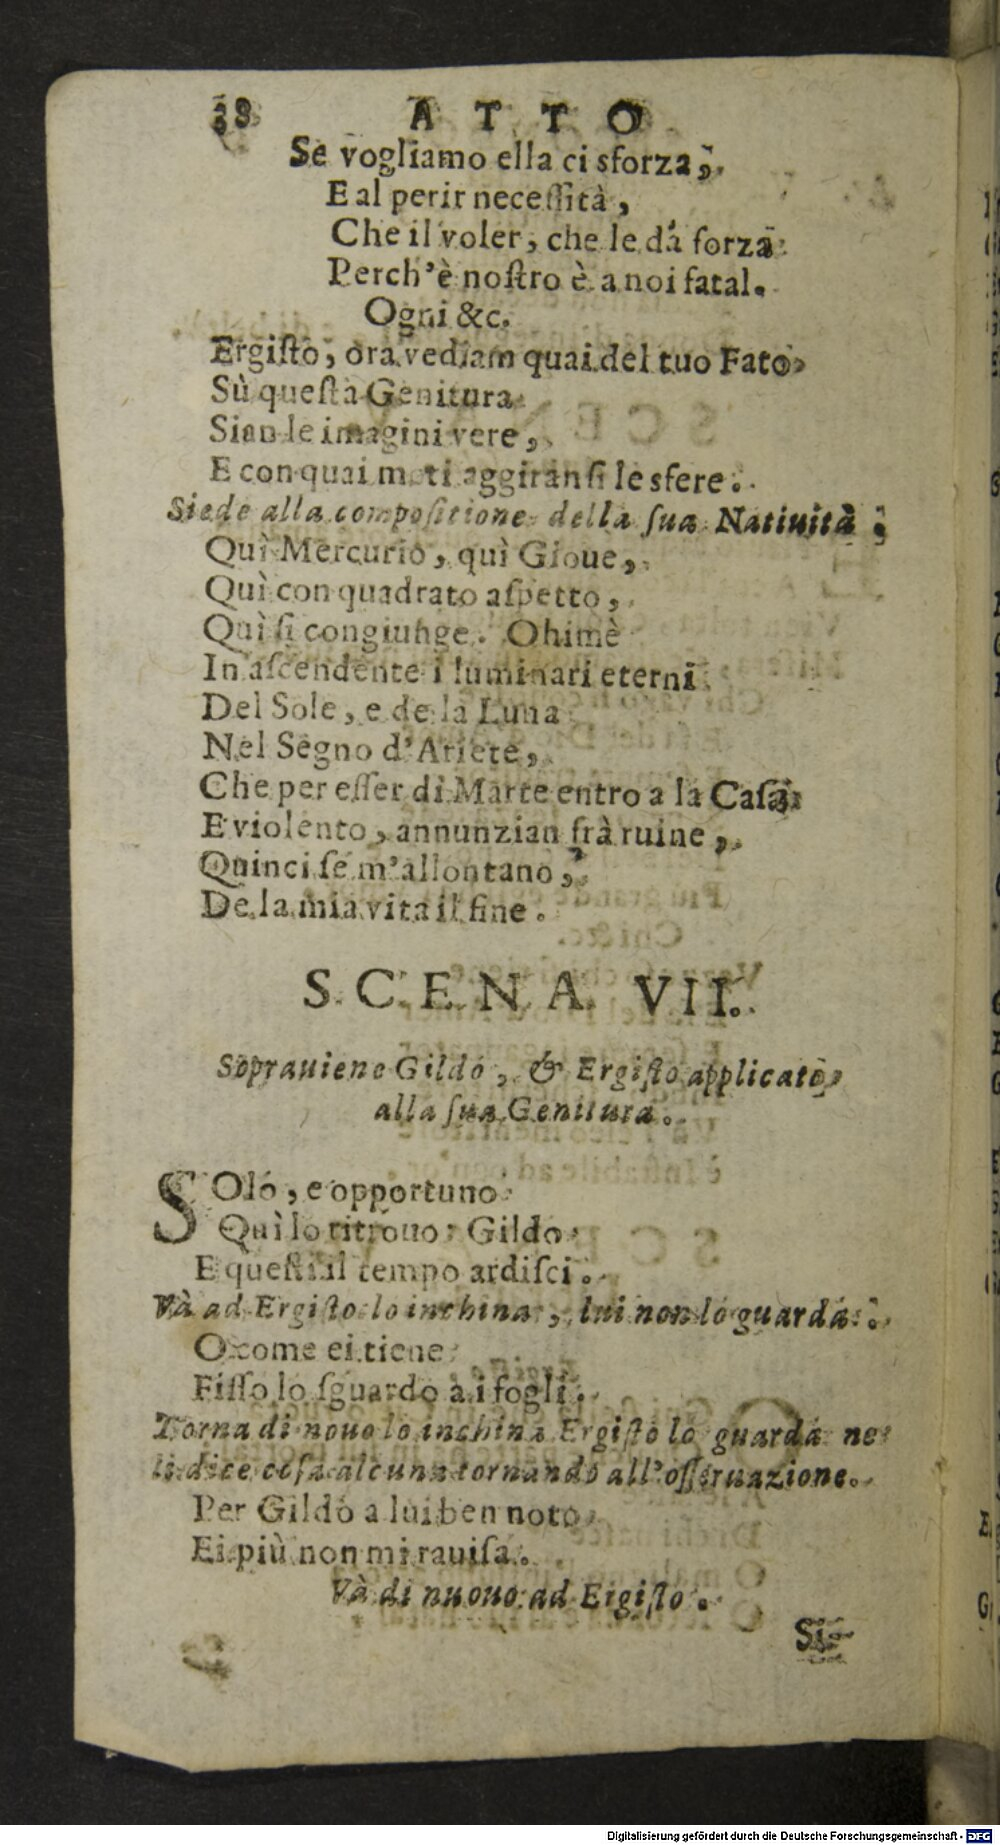 38 ATTO
Se vogliamo ella ci sforza;
E al perir necessità,
Che il voler, che le dá forza
Perch'è nostro è a noi fatal.
Ogni &c.
Ergisto, ora vediam quai del tuo Fato
Sù questa Genitura
Sian le imagini vere,
E con quai moti aggiransi le sfere.
Siede alla compositione della sua Natiuità.
Quì Mercurio, quì Gioue,
Quì con quadrato aspetto,
Quì si congiunge. Ohimè
In ascendente i luminari eterni
Del Sole, e de la Luna
Nel Segno d'Ariete,
Che per esser di Marte entro a la Casa
E violento, annunzian frà ruine,
Quinci se m'allontano,
De la mia vita il fine.
SCENA VII.
Soprauiene Gildo, & Ergisto applicato
alla sua Genitura.
SOlo, e opportuno
Quì lo ritrouo: Gildo
E questi il tempo ardisci.
Và ad Ergisto lo inchina, lui non lo guarda.
O come ei tiene
Fisso lo sguardo a i fogli.
Torna di nouo lo inchina Ergisto lo guarda ne
li dice cosa alcuna tornando all'osseruazione.
Per Gildo a lui ben noto
Ei più non mi rauisa.
Và di nuouo ad Ergisto.
Si
Digitalisierung gefördert durch die Deutsche Forschungsgemeinschaft - DFG